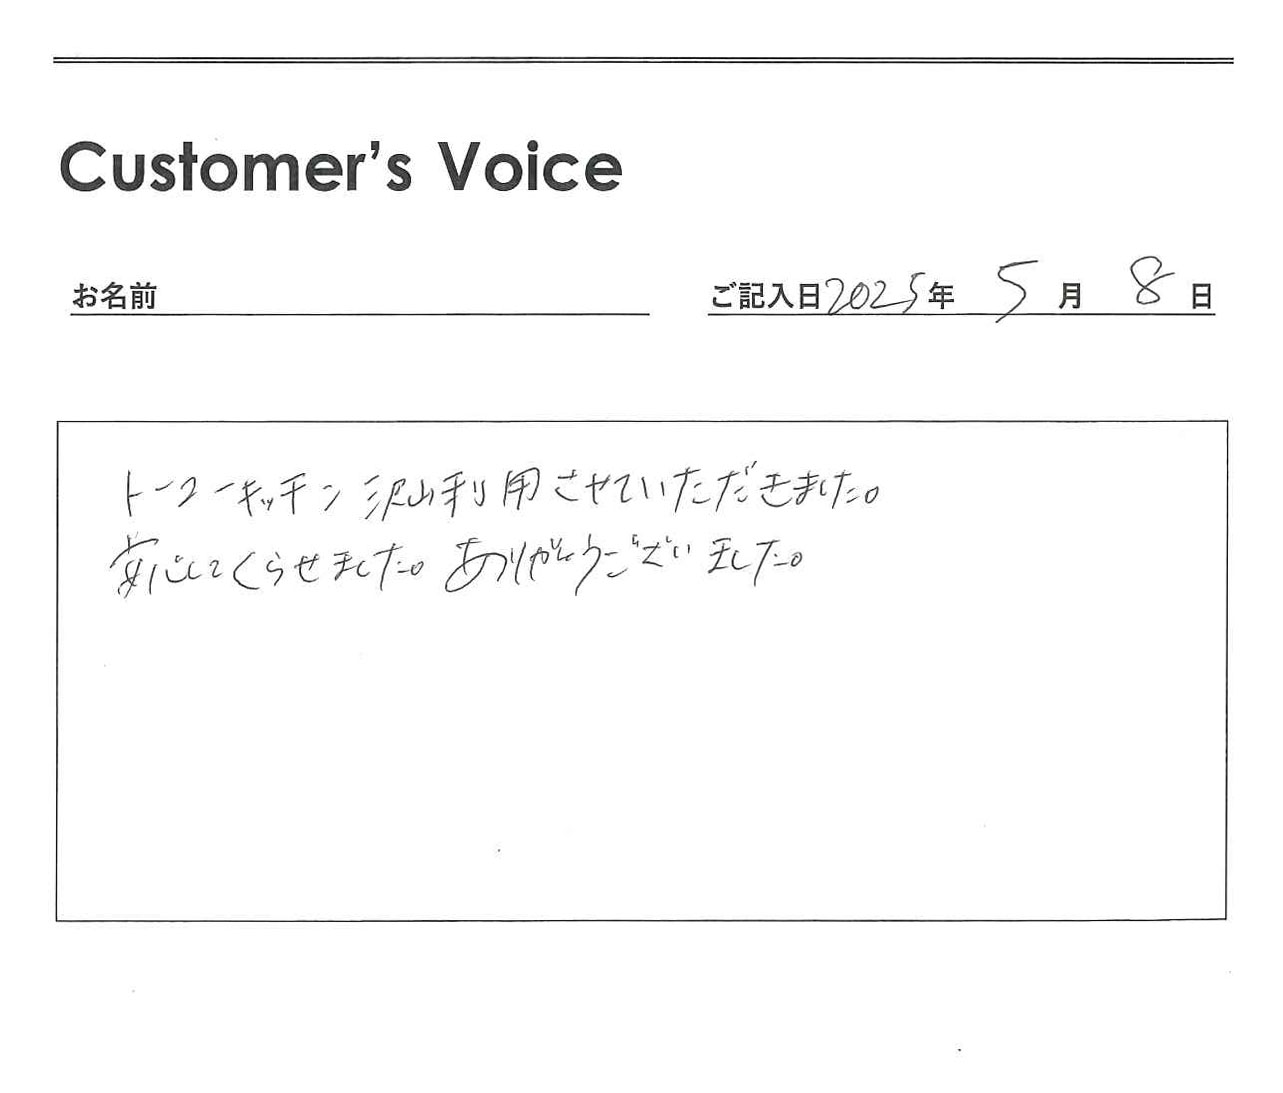 Customer's Voice
お名前
ご記入日2025年 5月 8日
トーコーキッチン沢山利用させていただきました。
安心してくらせました。ありがとうございました。